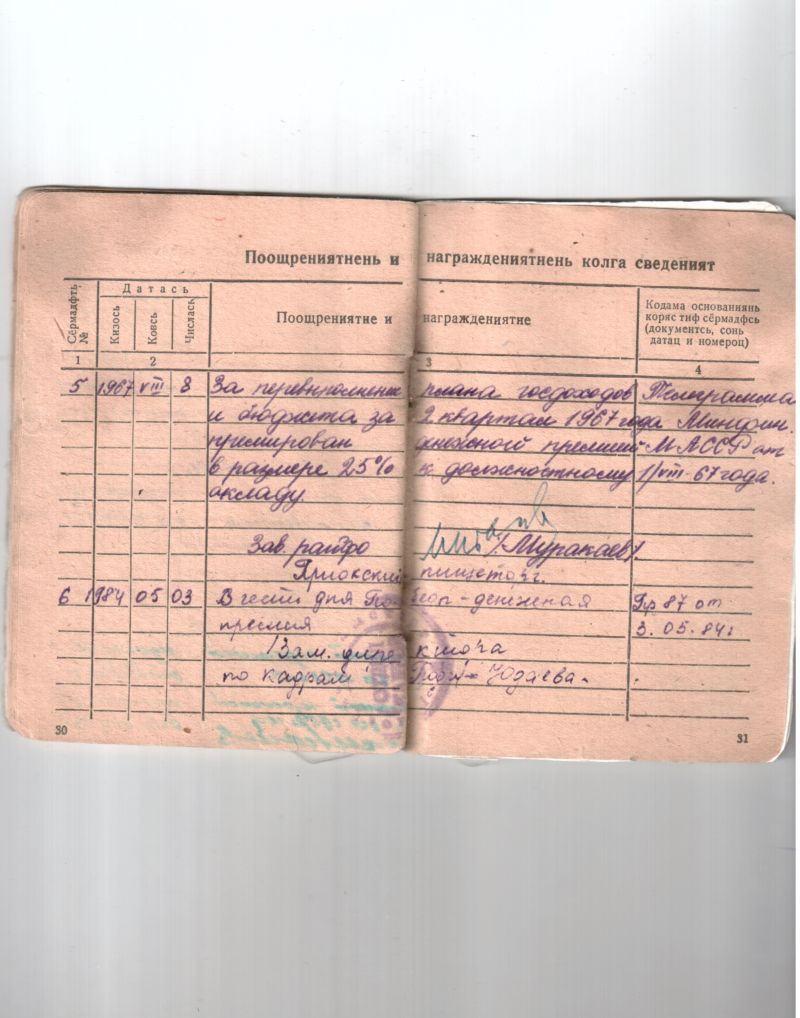 Поощрениятнень и награждениятнень колга сведеният
Сёрмадфть №
Датась
Кизось
Ковсь
Числась
Поощрениятие и награждениятие
Кодама основаниянь
коряс тиф сёрмадфсь
(документсь, сонь
датац и номероц)
1 2 3 4
5 1967 VIII 8 За перевыполнение плана госдоходов Телеграмма
и бюджета за 2 квартал 1967 года Минфин.
премирован денежной премией МАССР от
в размере 25% к должностному 1/VIII-67 года.
окладу
Зав. райфо /Муракаев/.
6 1984 05 03 В честь дня Победы - денежная Пр 87 от
премия 3.05.84г
Зам. директора
по кадрам Юдаева.
30
31